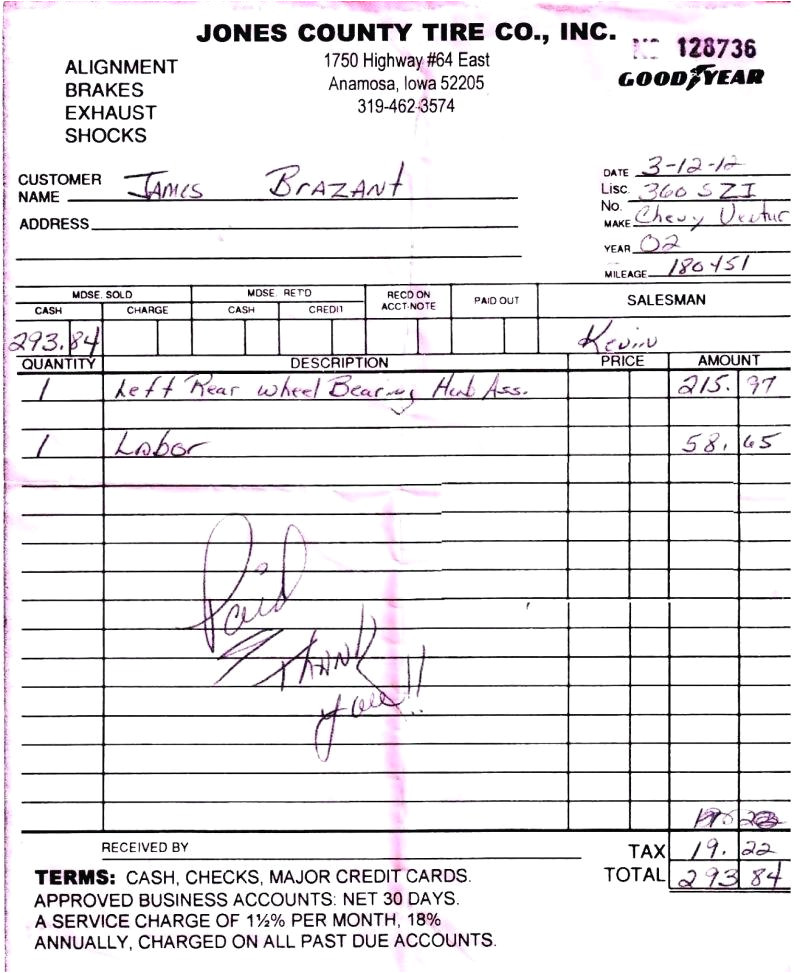 JONES COUNTY TIRE CO., INC.
1750 Highway #64 East
Anamosa, Iowa 52205
319-462-3574
NO 128736
GOODYEAR
ALIGNMENT
BRAKES
EXHAUST
SHOCKS
CUSTOMER NAME James Brazant
ADDRESS
DATE 3-12-12
Lisc. No. 360 SZI
MAKE Chevy Ventur
YEAR 02
MILEAGE 180451
MDSE. SOLD MDSE. RET'D RECD ON ACCT-NOTE PAID OUT SALESMAN
CASH CHARGE CASH CREDIT
293.84 Kevin
QUANTITY DESCRIPTION PRICE AMOUNT
1 Left Rear wheel Bearing Hub Ass. 215. 97
1 Labor 58. 65
Paid
THANK
you!!
RECEIVED BY
TAX 19. 22
TOTAL 293 84
TERMS: CASH, CHECKS, MAJOR CREDIT CARDS.
APPROVED BUSINESS ACCOUNTS: NET 30 DAYS.
A SERVICE CHARGE OF 1½% PER MONTH, 18%
ANNUALLY, CHARGED ON ALL PAST DUE ACCOUNTS.